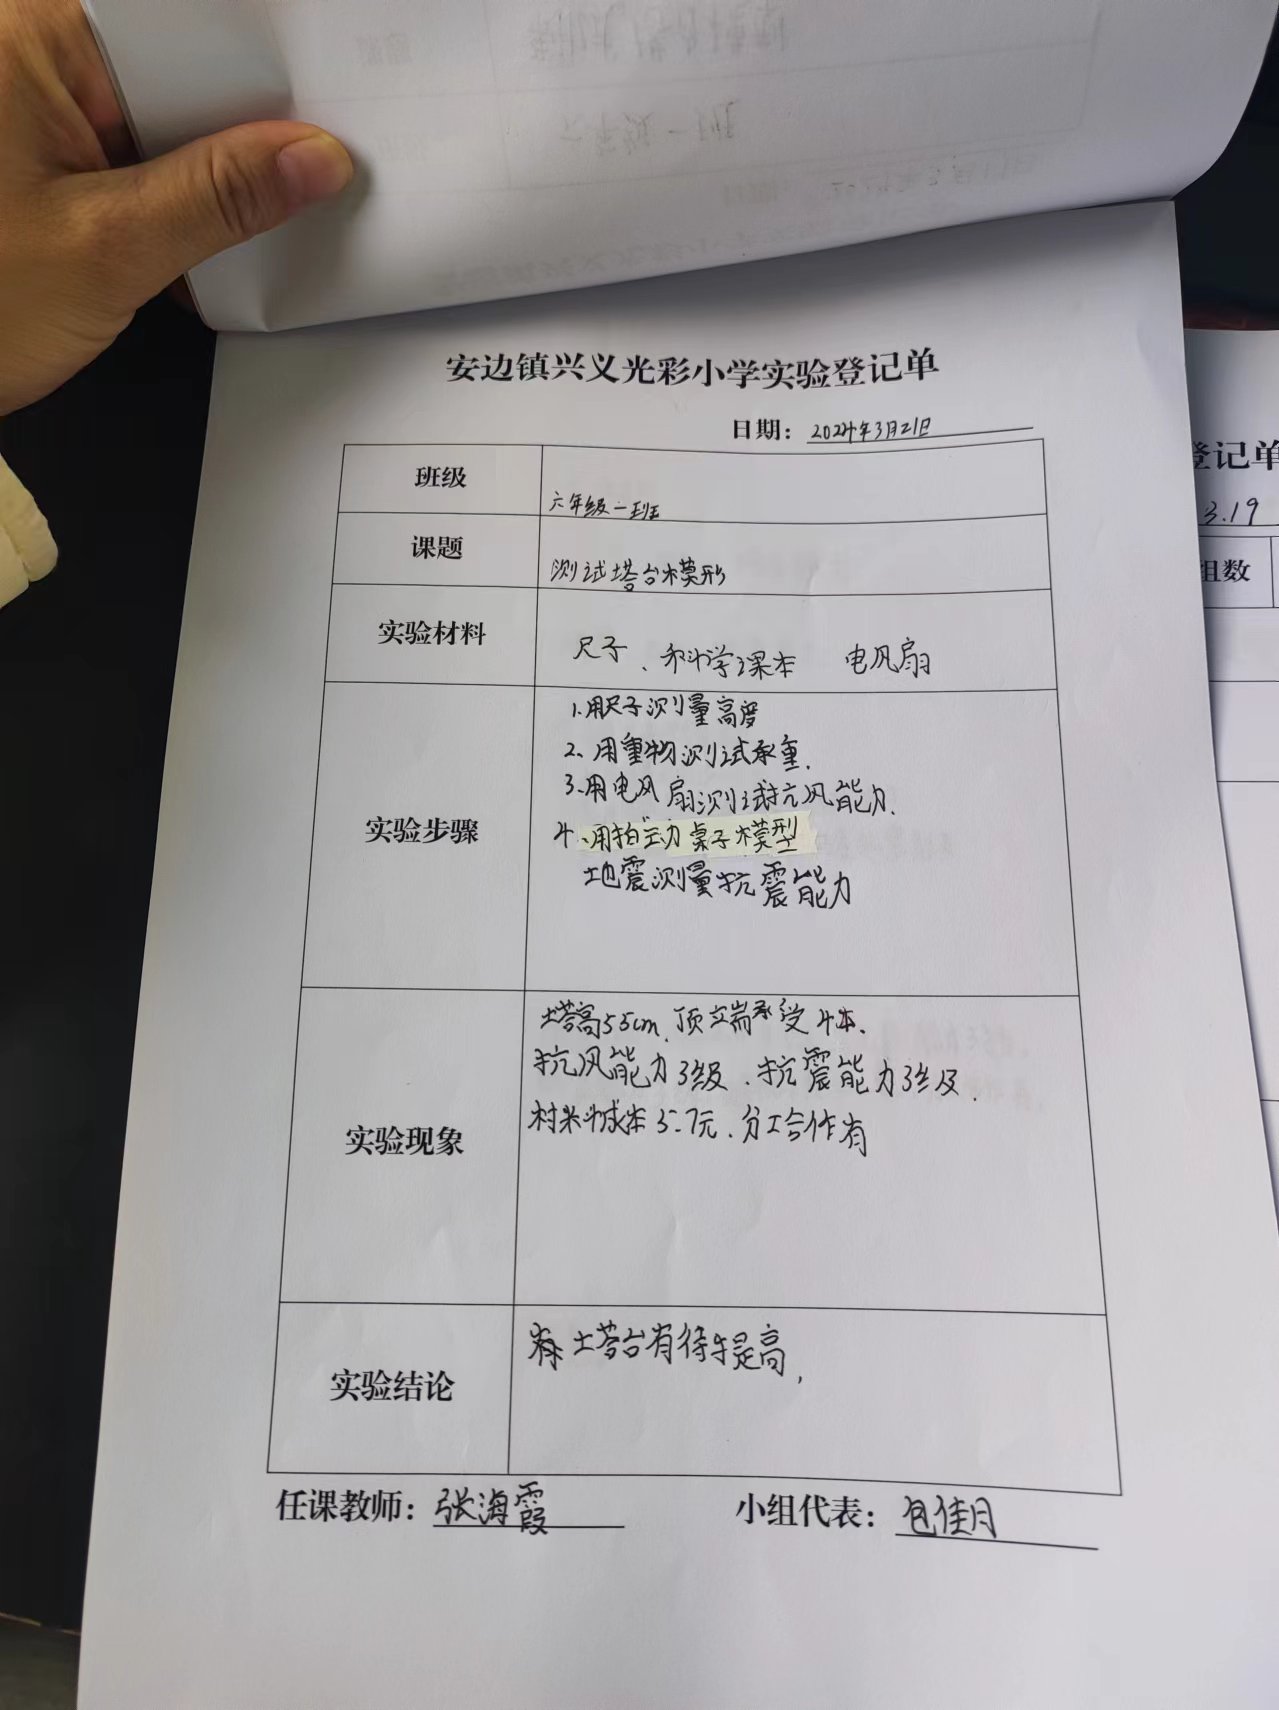 安边镇兴义光彩小学实验登记单
日期：2024年3月21日
班级
六年级一班
课题
测试塔台模形
实验材料
尺子、科学课本 电风扇
实验步骤
1.用尺子测量高度
2、用重物测试承重.
3.用电风扇测试抗风能力.
4、用拍动桌子模型
地震测量抗震能力
实验现象
塔高55cm、顶端承受4本、
抗风能力3级、抗震能力3级、
材料成本5.7元、分工合作有
实验结论
塔台有待提高,
任课教师：张海霞
小组代表：包佳月
登记单
3.19
组数